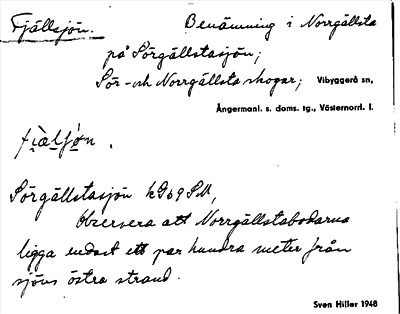 Fjällsjön. Benämning i Norrgällsta
på Sörgällstasjön;
Sör- och Norrgällsta skogar; Vibyggerå sn,
Ångermanl. s. doms. tg., Västernorrl. l.
fìälʃön.
Sörgällstasjön k D69 SM,
Observera att Norrgällstabodarna
ligga endast ett par hundra meter från
sjöns östra strand.
Sven Hiller 1948